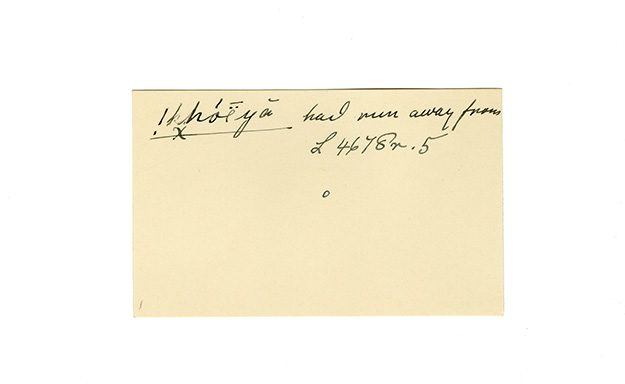 !kχhóï yā had run away from
L 4678r.5